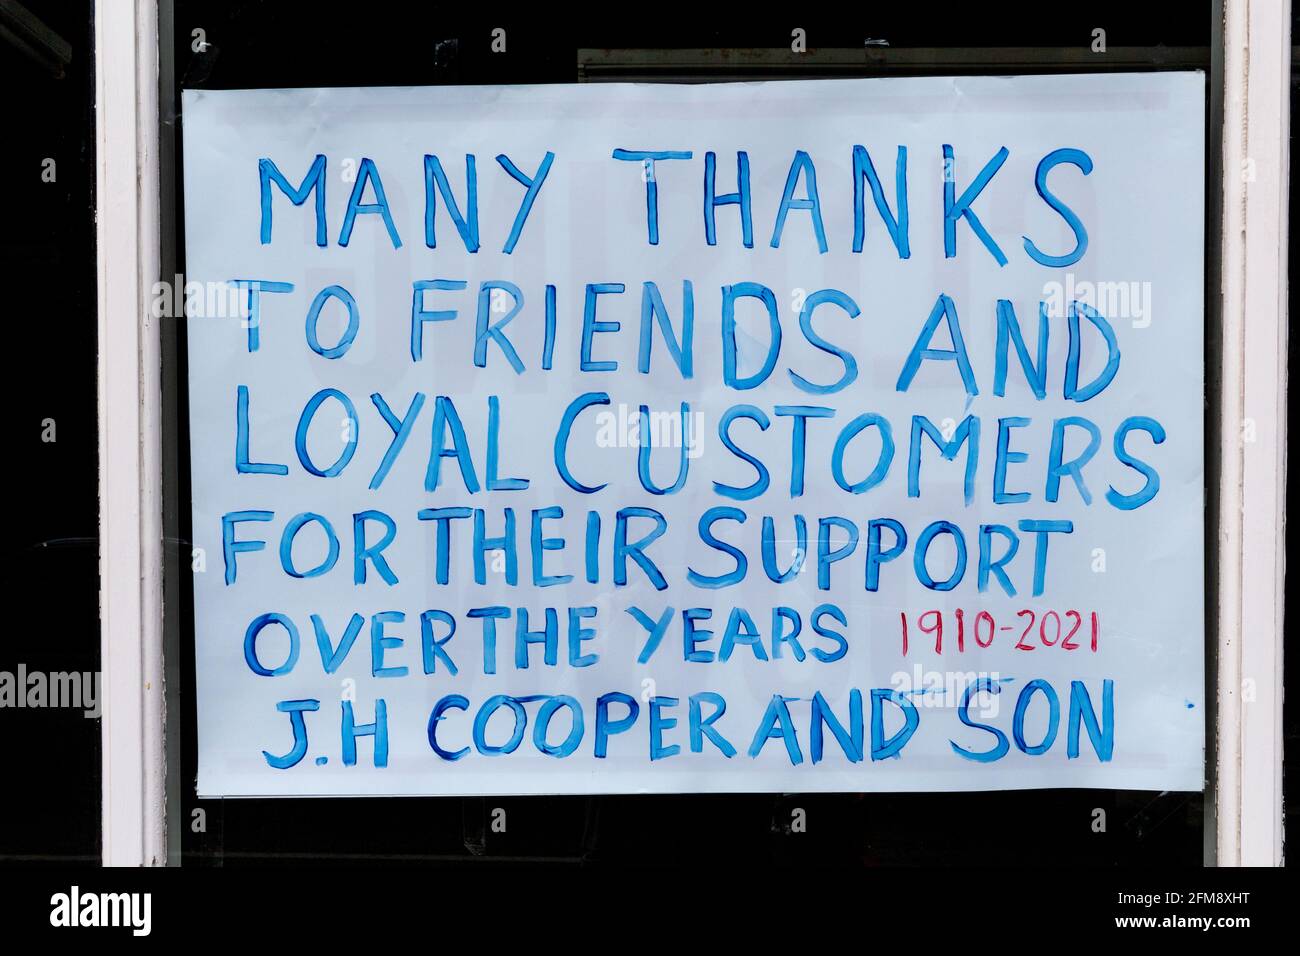 MANY THANKS
TO FRIENDS AND
LOYAL CUSTOMERS
FOR THEIR SUPPORT
OVER THE YEARS 1910-2021
J.H COOPER AND SON
alamy
Image ID: 2FM8XHT
www.alamy.com